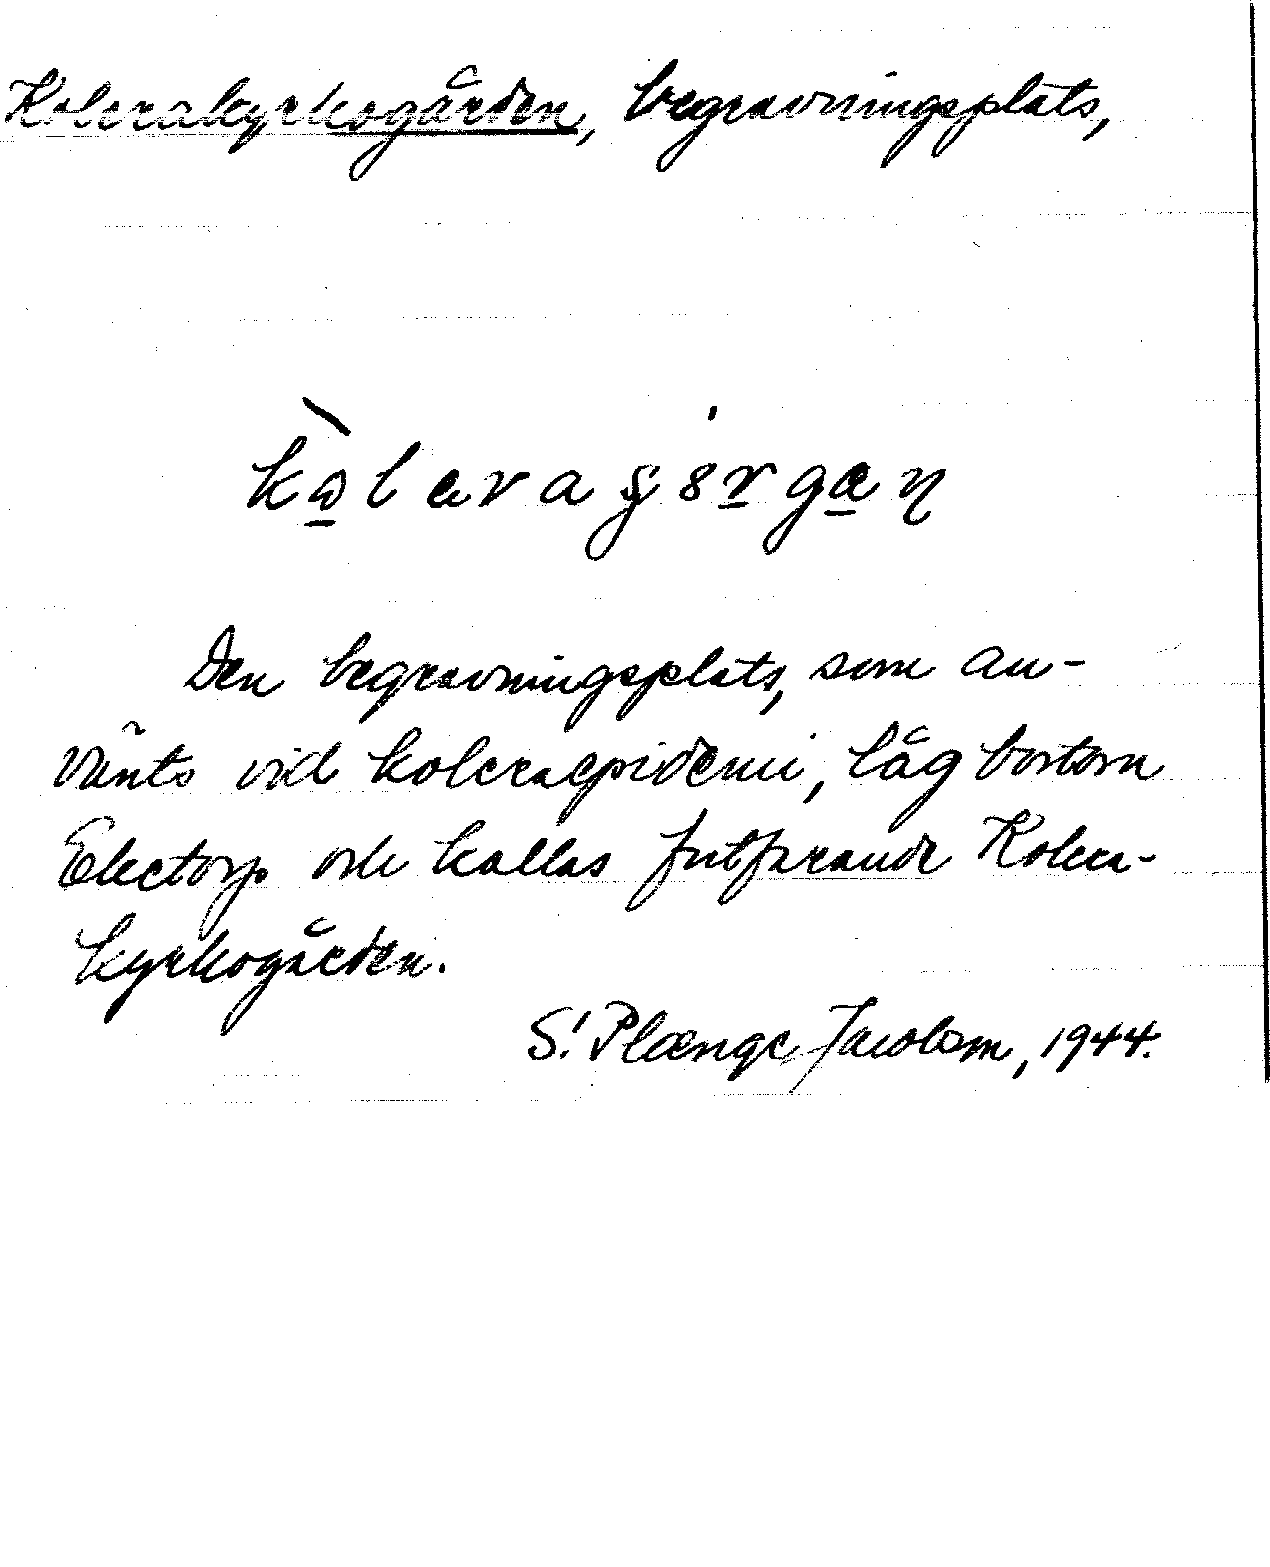 Kolerakyrkogården, begravningsplats,
Den begravningsplats, som an-
vänts vid koleraepidemi, låg bortom
Electorp och kallas fortfarande Kolera-
kyrkogården.
S. Plænge Jacobson, 1944.